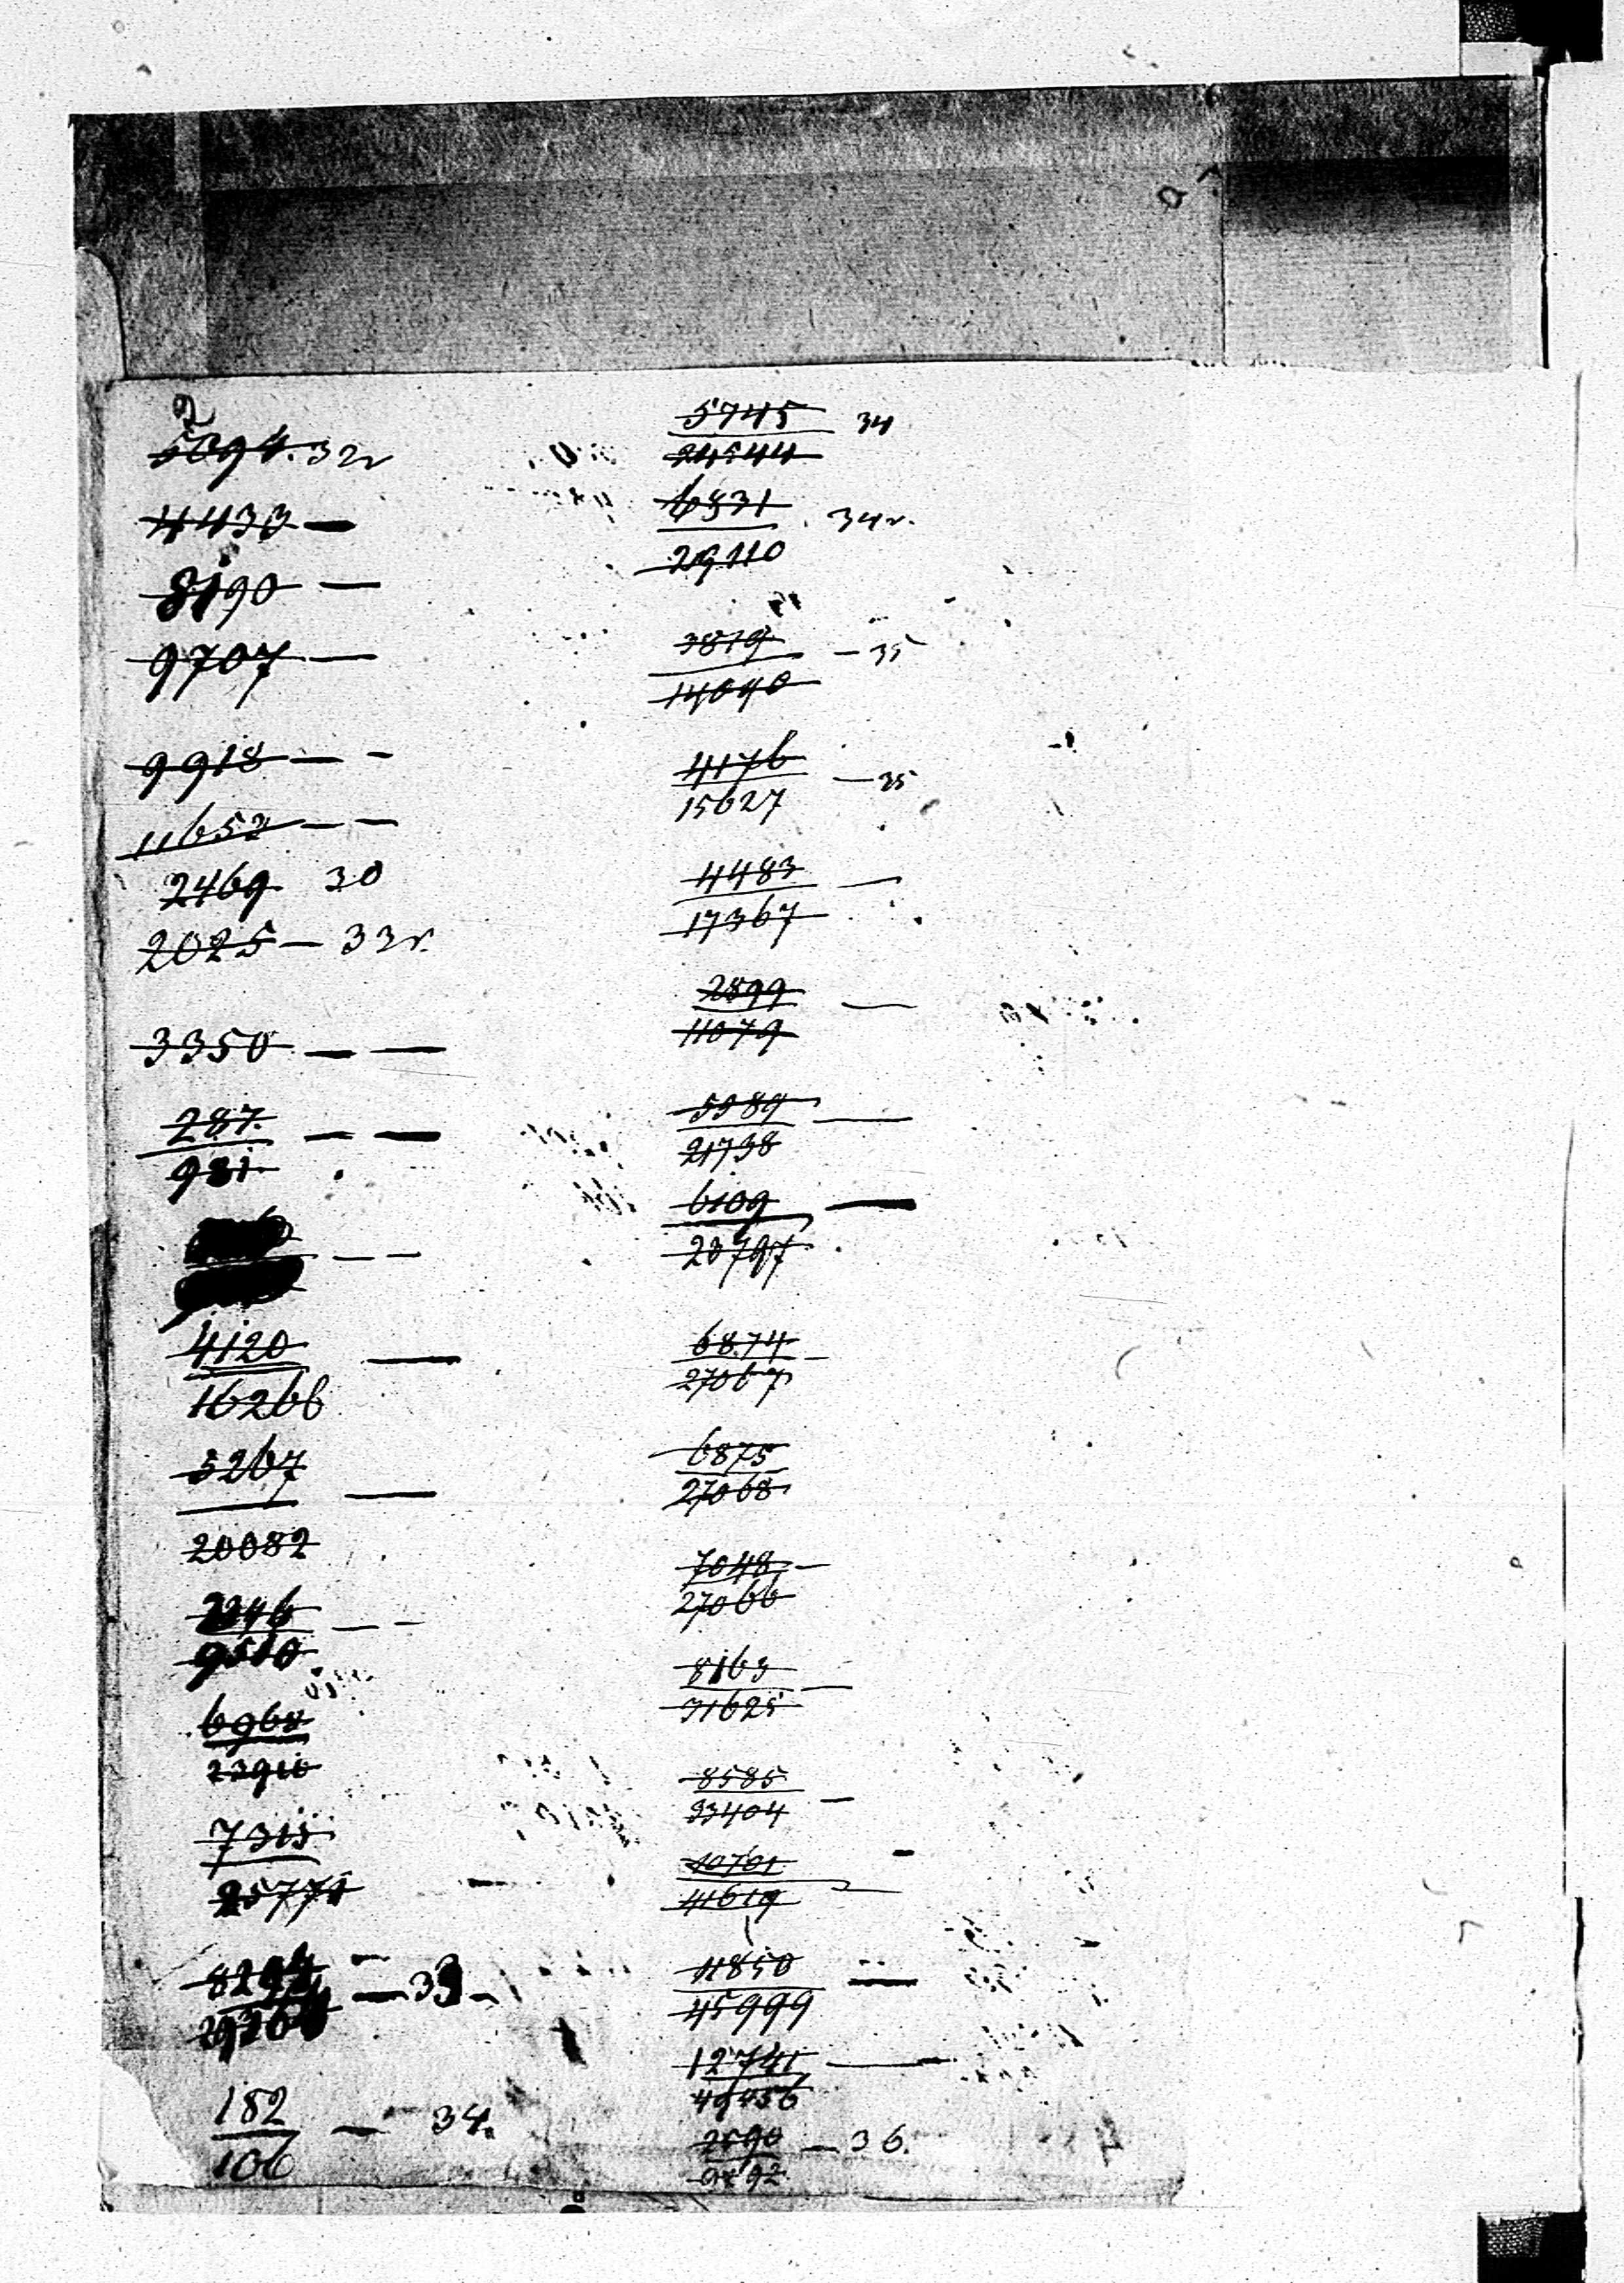 2
5094. 32г
4433 —
8190 —
9707 —
9918 — -
11652 — —
2469 30
2025 — 33г.
3350 — —
287. — —
981.
4120 —
16266
5267 —
20082
9510
6968
23910
7315
25774
8294 — 33
182 — 34.
106
5745 34
24544
6831 34г.
29110
3819 — 35
14040
4176 — 35
15627
4483 —
17367
2899 —
11079
5589 —
21738
6109 —
23797
6874 —
27067
6875
27068
7048 —
27066
8163 —
31625
8585 —
33404
10701 —
41619
11850 —
45999
12741 —
49456
2590 — 36.
9792